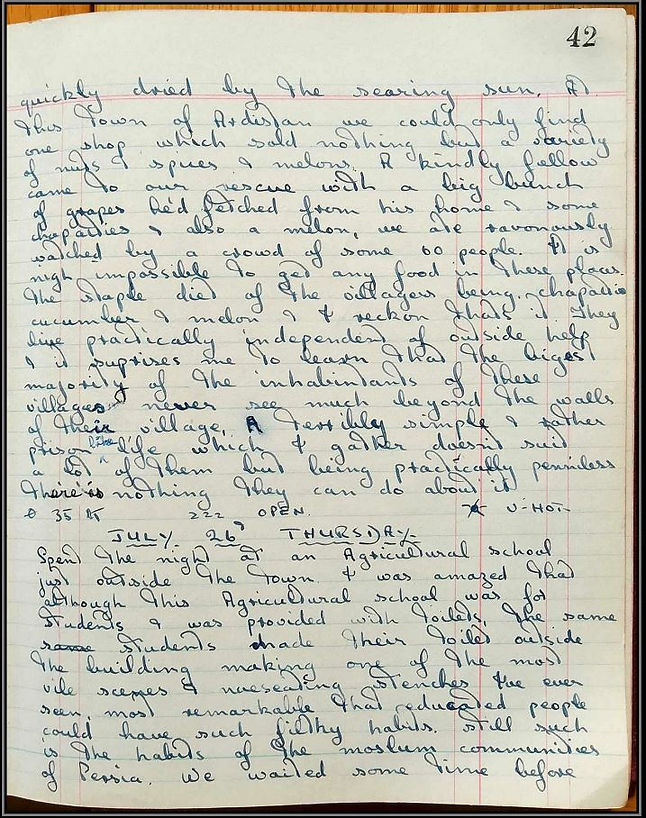 42
quickly dried by the searing sun. At
this town of Ardistan we could only find
one shop which sold nothing but a variety
of nuts & spices & melons. A kindly fellow
came to our rescue with a big bunch
of grapes he'd fetched from his home & some
chapatties & also a melon, we ate ravenously
watched by a crowd of some 60 people. It is
nigh impossible to get any food in these places.
The staple diet of the villagers being, chapattie
cucumber & melon & I reckon thats it. They
live practically independent of outside help
& it suprises me to learn that the bigest
majority of the inhabintants of these
villages never see much beyond the walls
of their village. A terribly simple & rather
prison like life which I gather doesn't suit
a lot of them but being practically penniless
there is nothing they can do about it
35 222 OPEN. V-HOT-
JULY 26 THURSDAY-
Spent the night at an Agricultural school
just outside the town. I was amazed that
although this Agricultural school was for
students & was provided with toilets, the same
same students made their toilet outside
the building making one of the most
vile scenes & nueseating stenches I've ever
seen, most remarkable that educated people
could have such filthy habits. still such
is the habits of the moslum communities
of Persia. We waited some time before